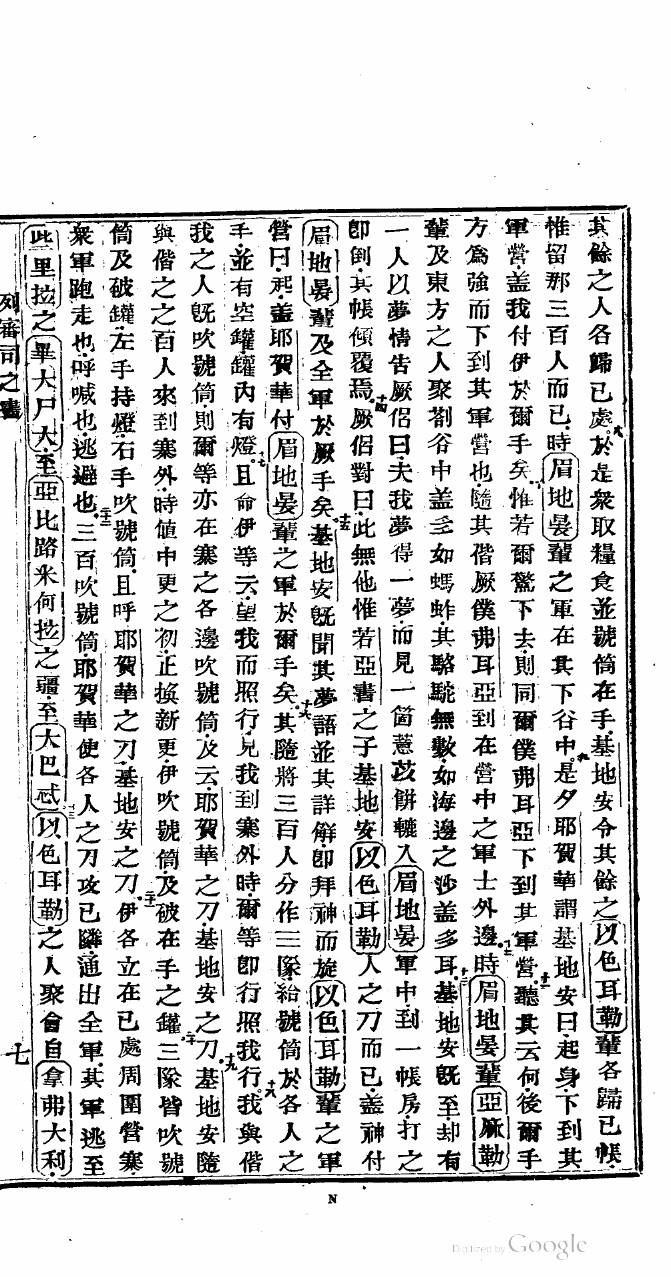 其餘之人各歸已處八於是衆取糧食並號筒在手基地安令其餘之以色耳勒輩各歸已帳
惟留那三百人而已時眉地晏輩之軍在其下谷中九是夕耶賀華謂基地安曰起身下到其
軍營盖我付伊於爾手矣十惟若爾驚下去則同爾僕弗耳亞下到其軍營十一聽其云何後爾手
方爲強而下到其軍營也隨其偕厥僕弗耳亞到在營中之軍士外邊十二時眉地晏輩亞麻勒
輩及東方之人聚劄谷中盖多如螞蚱其駱駝無數如海邊之沙盖多耳十三基地安旣至却有
一人以夢情告厥侶曰夫我夢得一夢而見一箇薏苡餅轆入眉地晏軍中到一帳房打之
卽倒其帳傾覆焉十四厥侶對曰此無他惟若亞書之子基地安以色耳勒人之刀而已盖神付
眉地晏輩及全軍於厥手矣十五基地安旣聞其夢語並其詳解卽拜神而旋以色耳勒輩之軍
營曰起盖耶賀華付眉地晏輩之軍於爾手矣十六其隨將三百人分作三隊給號筒於各人之
手並有空罐罐內有燈十七且命伊等云望我而照行見我到寨外時爾等卽行照我行十八我與偕
我之人旣吹號筒則爾等亦在寨之各邊吹號筒及云耶賀華之刀基地安之刀十九基地安隨
與偕之之百人來到寨外時値中更之初正換新更伊吹號筒及破在手之罐二十三隊皆吹號
筒及破罐左手持燈右手吹號筒且呼耶賀華之刀基地安之刀二十一伊各立在已處周圍營寨
衆軍跑走也呼喊也逃避也二十二三百吹號筒耶賀華使各人之刀攻已隣通出全軍其軍逃至
此里拉之畢大尸大至亞比路米何拉之疆至大巴忒二十三以色耳勒之人聚會自拿弗大利
列審司之書
七
N
Digitized by Google